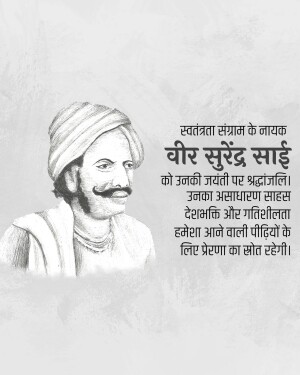 स्वतंत्रता संग्राम के नायक
वीर सुरेंद्र साई
को उनकी जयंती पर श्रद्धांजलि।
उनका असाधारण साहस
देशभक्ति और गतिशीलता
हमेशा आने वाली पीढ़ियों के
लिए प्रेरणा का स्रोत रहेगी।